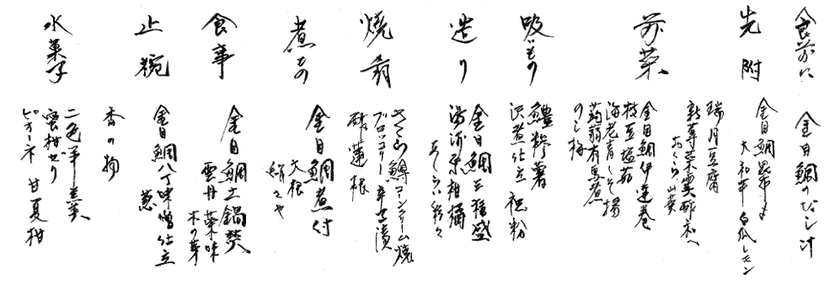 食前に 金目鯛のひれ汁
先附
金目鯛昆布〆
大和芋 白瓜 レモン
瑞月豆腐
新蓴菜 雲丹酢和へ
おくら 山葵
前菜
金目鯛伊達巻
枝豆塩茹
海老青しそ揚
蒟蒻有馬煮
のし梅
吸いもの
鱧粽薯
沢煮仕立 椒粉
造り
金目鯛三種盛
湯河原柑橘
あしらい彩々
焼肴
さくら鱒コーンクリーム焼
ブロッコリー辛子漬
酢蓮根
煮もの
金目鯛煮付
大根
絹さや
食事
金目鯛土鍋焚
雲丹 薬味
木の芽
止椀
金目鯛八丁味噌仕立
葱
香の物
水菓子
二色羊羹
蜜柑ゼリー
ピオーネ 甘夏柑